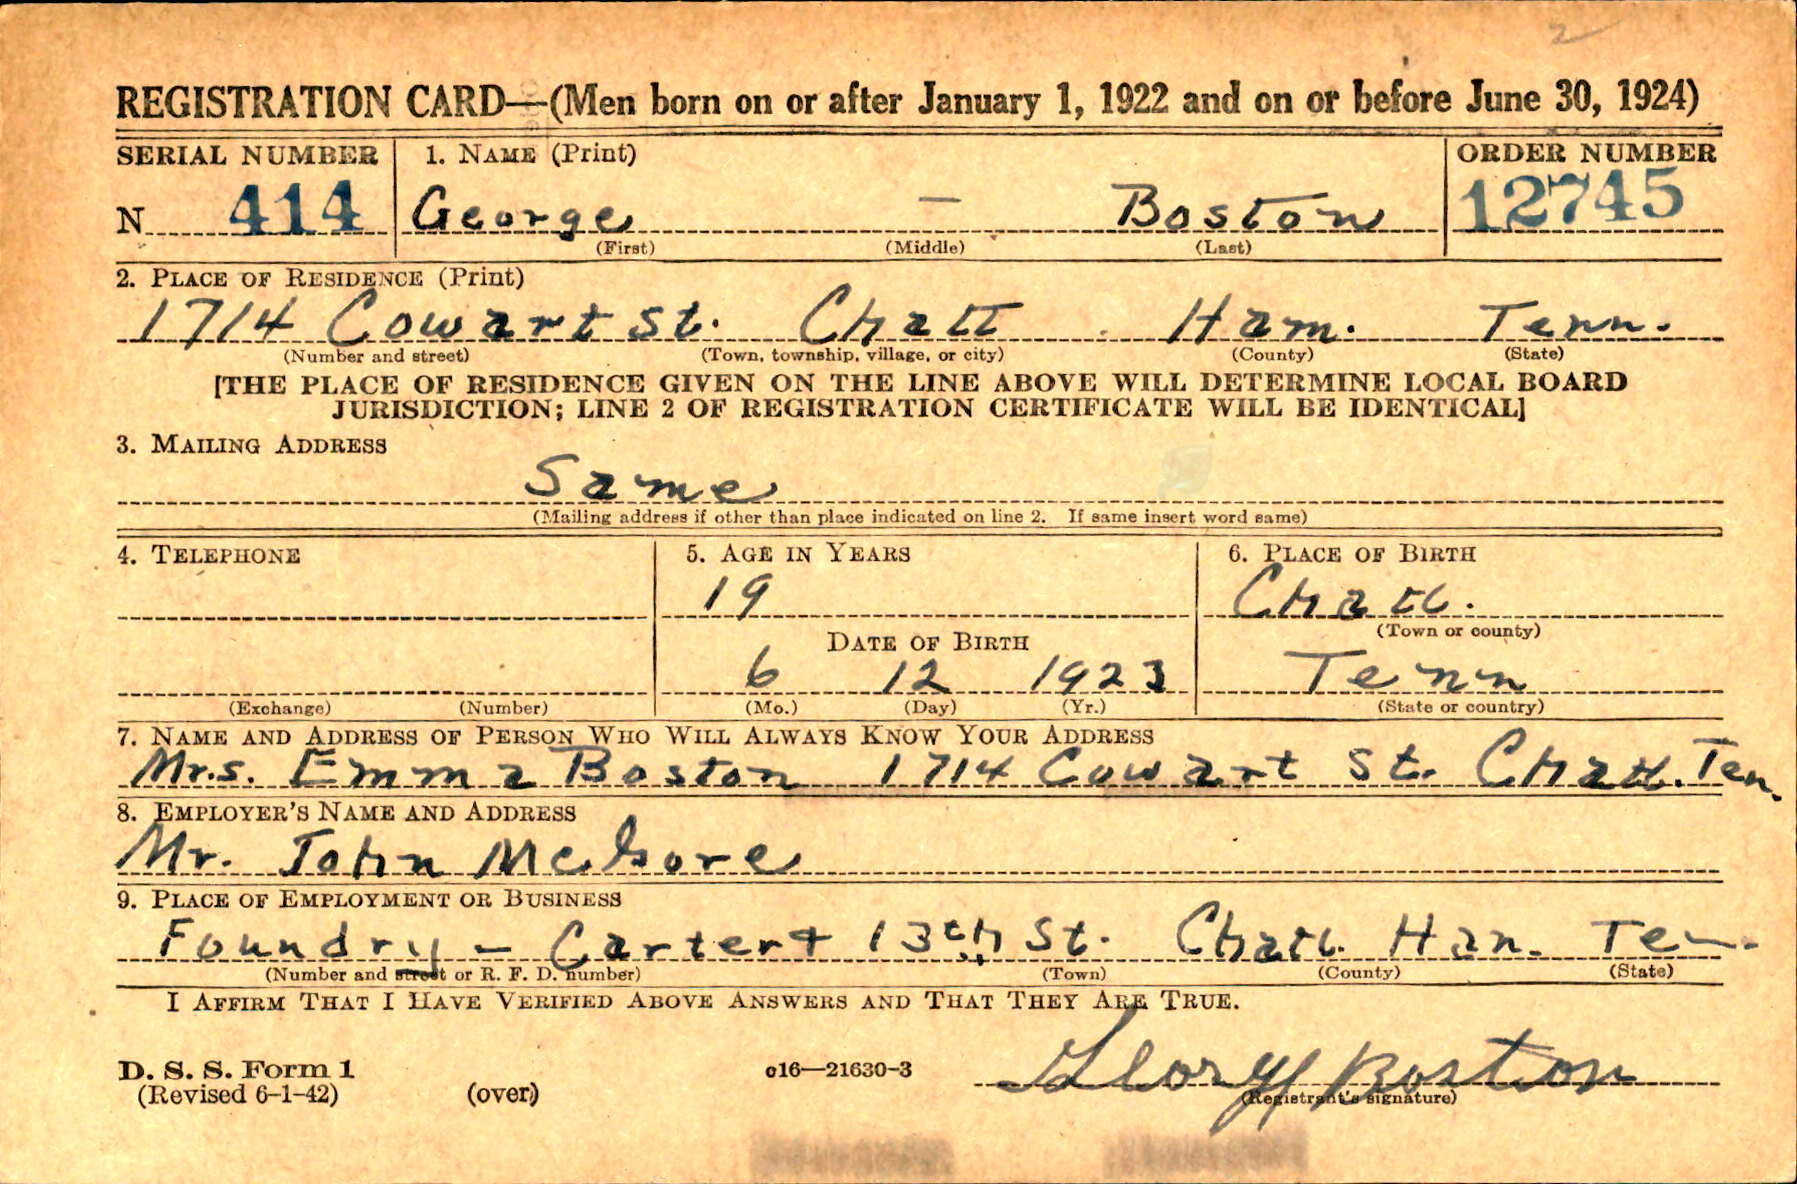 2
REGISTRATION CARD—(Men born on or after January 1, 1922 and on or before June 30, 1924)
SERIAL NUMBER 1. NAME (Print) ORDER NUMBER
N 414 George — Boston 12745
(First) (Middle) (Last)
2. PLACE OF RESIDENCE (Print)
1714 Cowart St. Chatt Ham. Tenn.
(Number and street) (Town, township, village, or city) (County) (State)
[THE PLACE OF RESIDENCE GIVEN ON THE LINE ABOVE WILL DETERMINE LOCAL BOARD
JURISDICTION; LINE 2 OF REGISTRATION CERTIFICATE WILL BE IDENTICAL]
3. MAILING ADDRESS
Same
(Mailing address if other than place indicated on line 2. If same insert word same)
4. TELEPHONE 5. AGE IN YEARS 6. PLACE OF BIRTH
19 Chatt.
(Town or county)
DATE OF BIRTH
6 12 1923 Tenn
(Exchange) (Number) (Mo.) (Day) (Yr.) (State or country)
7. NAME AND ADDRESS OF PERSON WHO WILL ALWAYS KNOW YOUR ADDRESS
Mrs. Emma Boston 1714 Cowart St. Chatt. Ten.
8. EMPLOYER'S NAME AND ADDRESS
Mr. John McGore
9. PLACE OF EMPLOYMENT OR BUSINESS
Foundry - Carter + 13th St. Chatt. Han. Ten.
(Number and street or R. F. D. number) (Town) (County) (State)
I AFFIRM THAT I HAVE VERIFIED ABOVE ANSWERS AND THAT THEY ARE TRUE.
D. S. S. Form 1
(Revised 6-1-42) (over) c16—21630-3 Boston
(Registrant's signature)